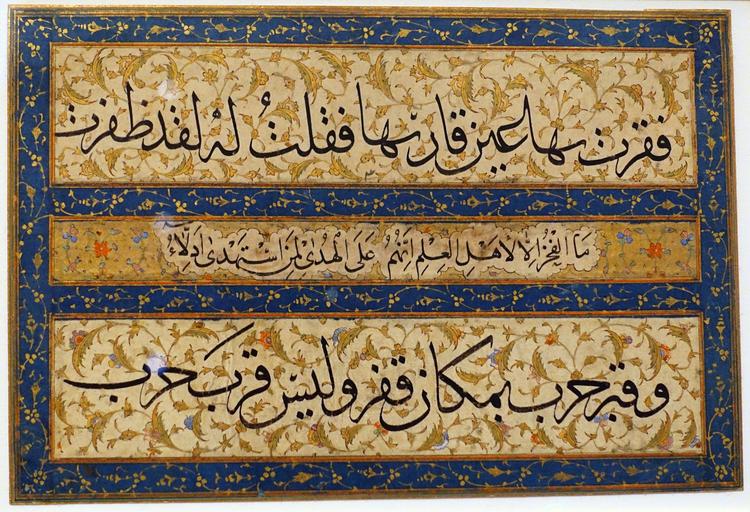 فقرت بها عين قاريها فقلتُ لهُ لقد ظفرت
مَا الفَخْرُ اِلَّا لِاَهْلِ العِلْمِ اِنَّهُمُ عَلَى الْهُدَى لِمَنْ اسْتَهْدَى اَدِلَّاءُ
وقبر حرب بمكان قفر وليس قرب حرب